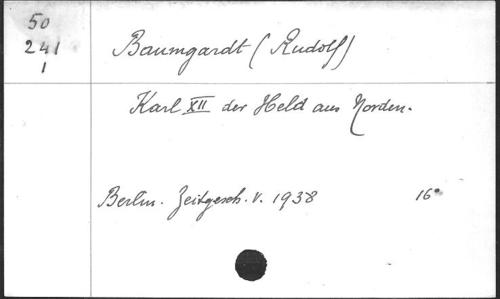 50
241
1
Baumgardt (Rudolf)
Karl XII der Held aus Norden.
Berlin. Zeitgesch. V. 1938 16°